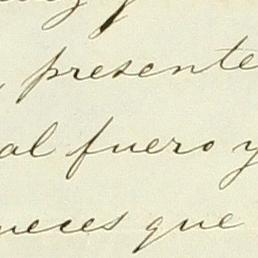 , presente
al fuero y
ueces que